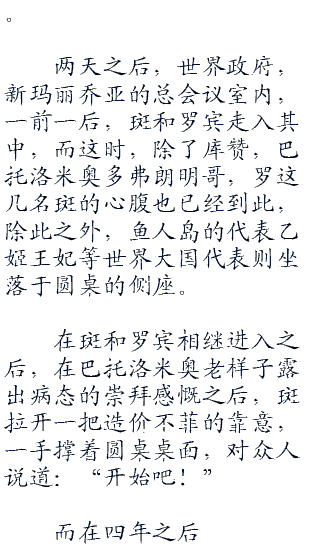 。
两天之后，世界政府，
新玛丽乔亚的总会议室内，
一前一后，斑和罗宾走入其
中，而这时，除了库赞，巴
托洛米奥多弗朗明哥，罗这
几名斑的心腹也已经到此，
除此之外，鱼人岛的代表乙
姬王妃等世界大国代表则坐
落于圆桌的侧座。
在斑和罗宾相继进入之
后，在巴托洛米奥老样子露
出病态的崇拜感慨之后，斑
拉开一把造价不菲的靠意，
一手撑着圆桌桌面，对众人
说道：“开始吧！”
而在四年之后